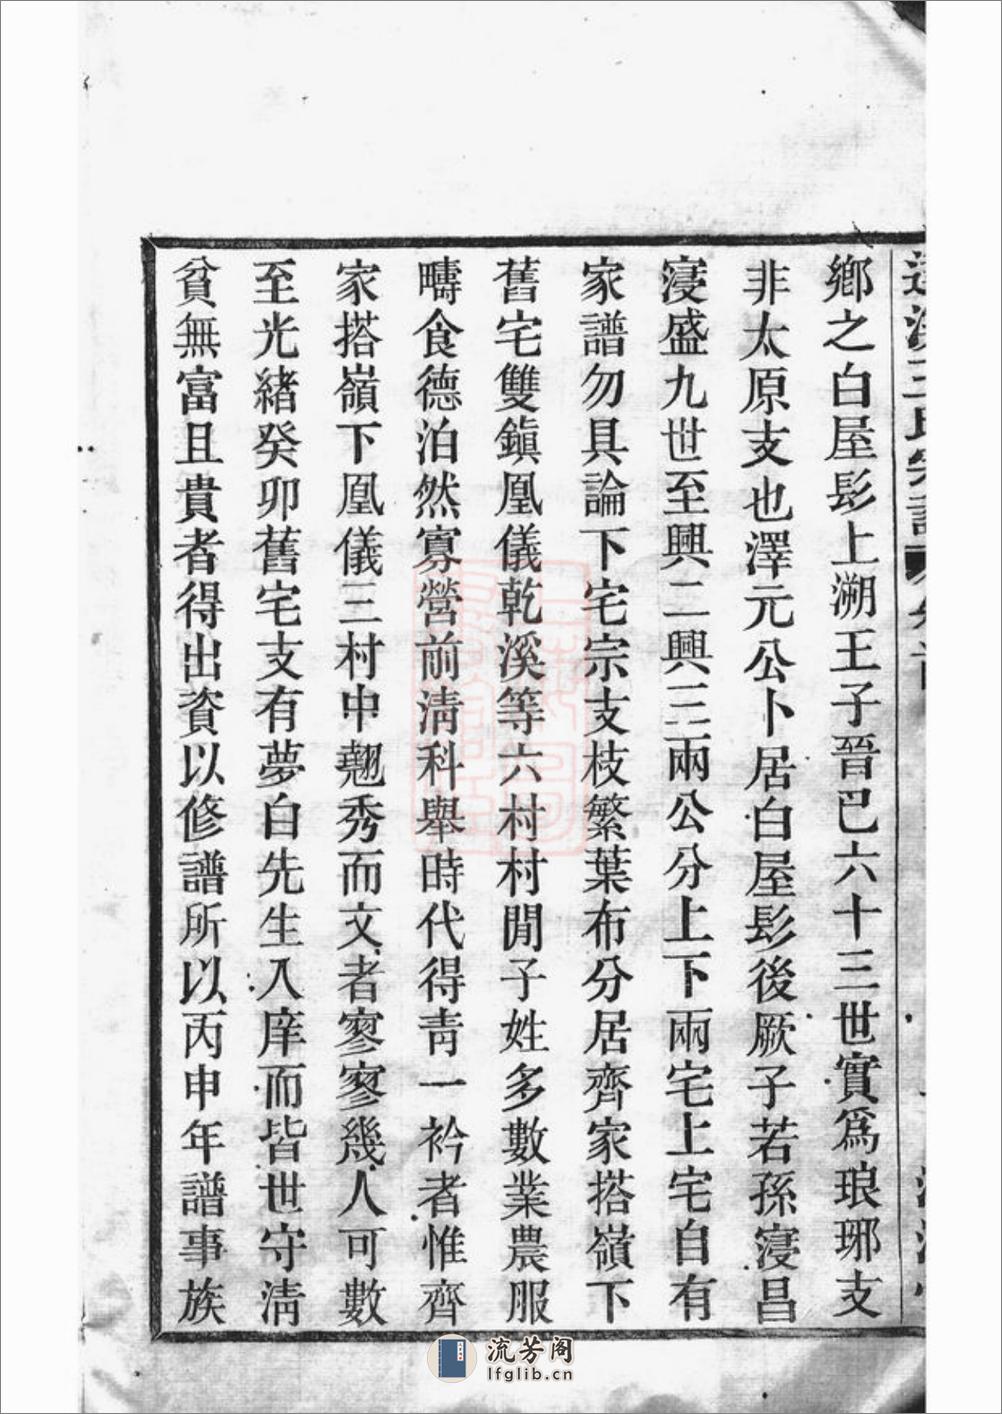 鄉之白屋髟上溯王子晉已六十三世實爲琅琊支
非太原支也澤元公卜居白屋髟後厥子若孫寖昌
寖盛九世至興二興三兩公分上下兩宅上宅自有
家譜勿具論下宅宗支枝繁葉布分居齊家搭嶺下
舊宅雙鎭凰儀乾溪等六村村閒子姓多數業農服
疇食德泊然寡營前淸科舉時代得靑一衿者惟齊
家搭嶺下凰儀三村中翹秀而文者寥寥幾人可數
至光緖癸卯舊宅支有夢白先生入庠而皆世守淸
貧無富且貴者得出資以修譜所以丙申年譜事族
流芳阁
lfglib.cn